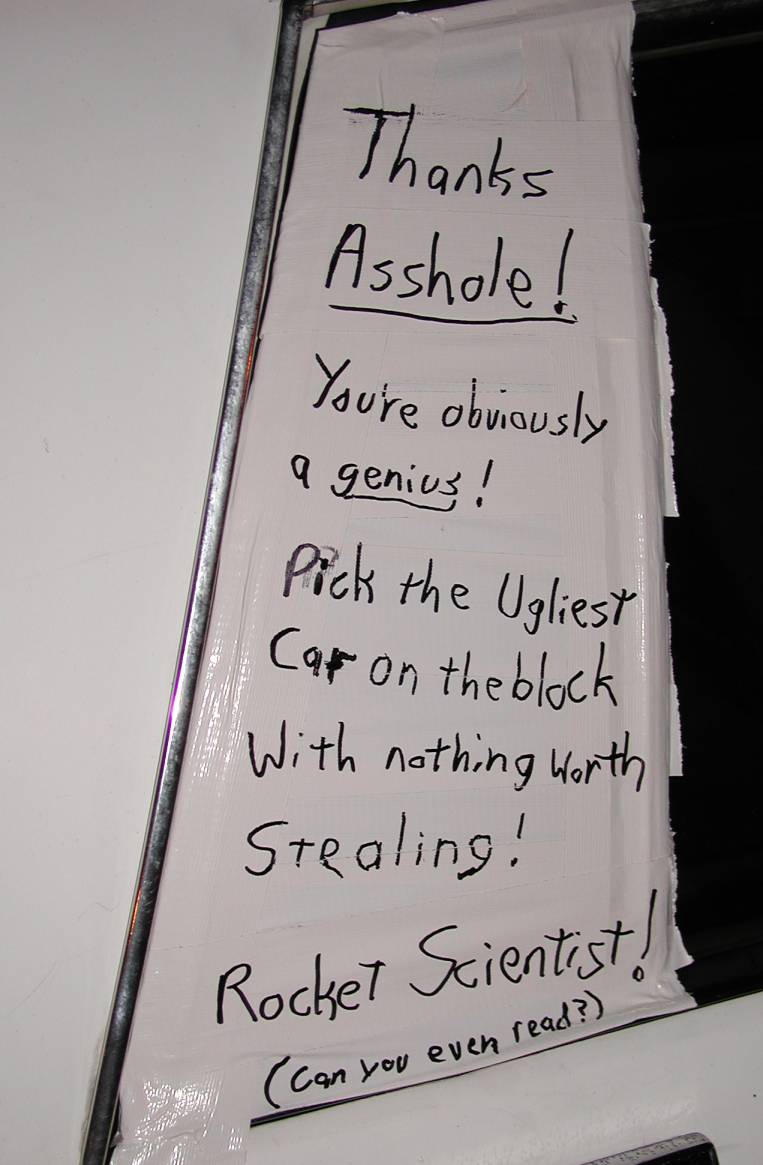 Thanks
Asshole!
You're obviously
a genius!
Pick the Ugliest
Car on the block
With nothing worth
Stealing!
Rocket Scientist!
(Can you even read?)